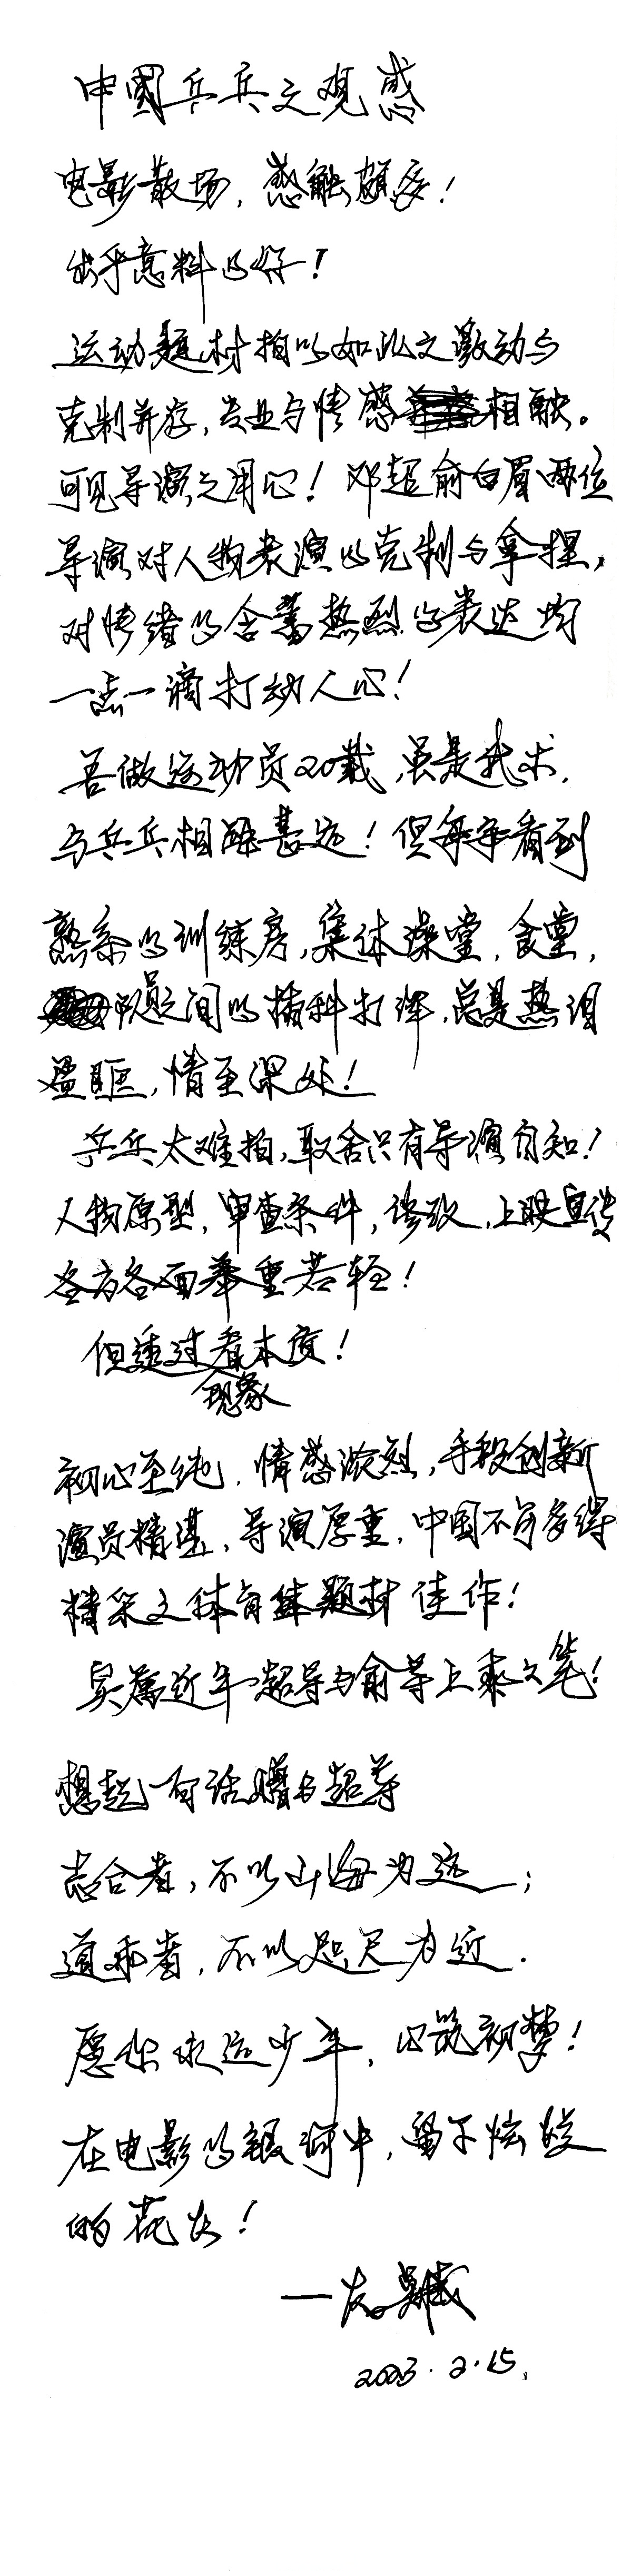 中國乒乓之观感
电影散场，感触颇多！
出乎意料的好！
运动题材拍的如此之激动与
克制并存，专业与情感相融。
可见导演之用心！邓超俞白眉两位
导演对人物表演的克制与拿捏，
对情绪的含蓄热烈的表达均
一点一滴打动人心！
吾做运动员20载，虽是武术，
与乒乓相距甚远！但每每看到
熟悉的训练房，集体澡堂，食堂，
队员之间的插科打诨，总是热泪
盈眶，情至深处！
乒乓太难拍，取舍只有导演自知！
人物原型，审查条件，修改，上映宣传
各方各面举重若轻！
但透过现象看本质！
初心至纯，情感浓烈，手段创新
演员精湛，导演厚重，中国不可多得
精采之体育题材佳作！
实属近年超导与俞导上乘之笔！
想起一句话赠与超导
志合者，不以山海为远；
道乖者，不以咫尺为近．
愿你永远少年，心筑初梦！
在电影的银河中，留下炫烂
的花火！
—友 吴京
2023.2.15.